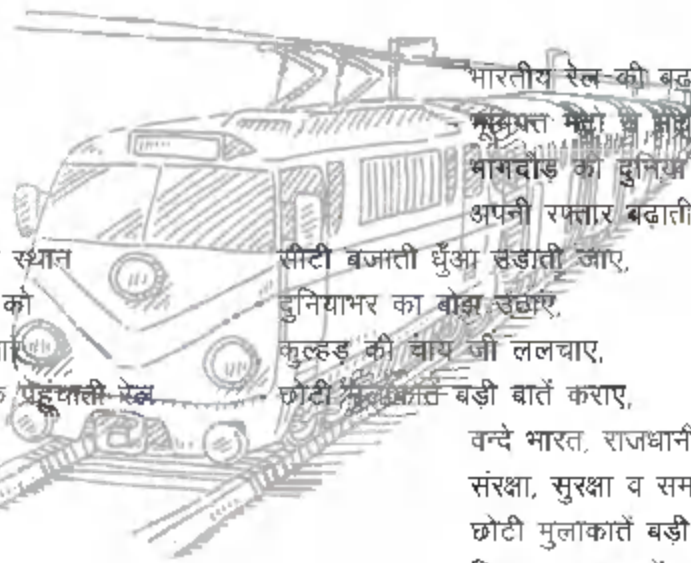 भारतीय रेल की बढ़
भागदौड़ की दुनिया
अपनी रफ्तार बढ़ाती
स्थान
को
पहुंचाती रेल
सीटी बजाती धुँआ उडाती जाए,
दुनियाभर का बोझ उठाए,
कुल्हड की चाय जी ललचाए,
छोटी मुलाकातें बड़ी बातें कराए,
वन्दे भारत, राजधानी
संरक्षा, सुरक्षा व सम
छोटी मुलाकातें बड़ी